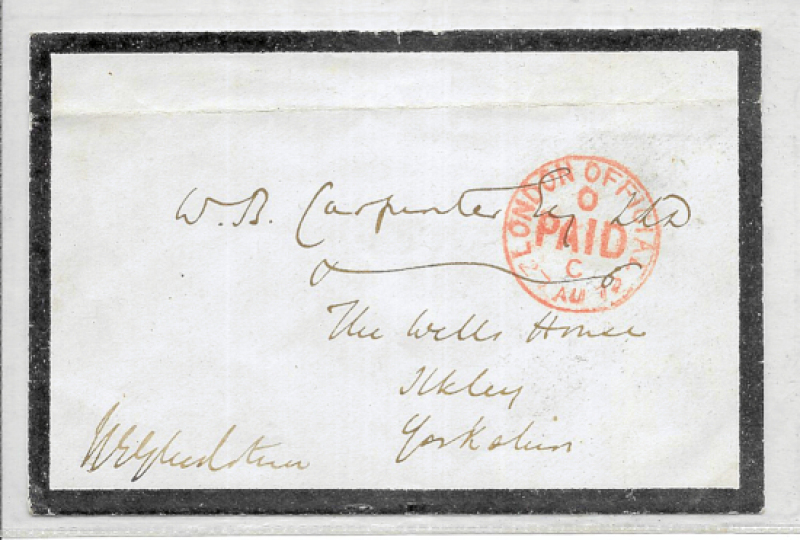 LONDON OFFICIAL
O
PAID
C
27 AU 72
W. B. Carpenter Esq LLD
&c
The Wells House
Ilkley
Yorkshire
WEGladstone